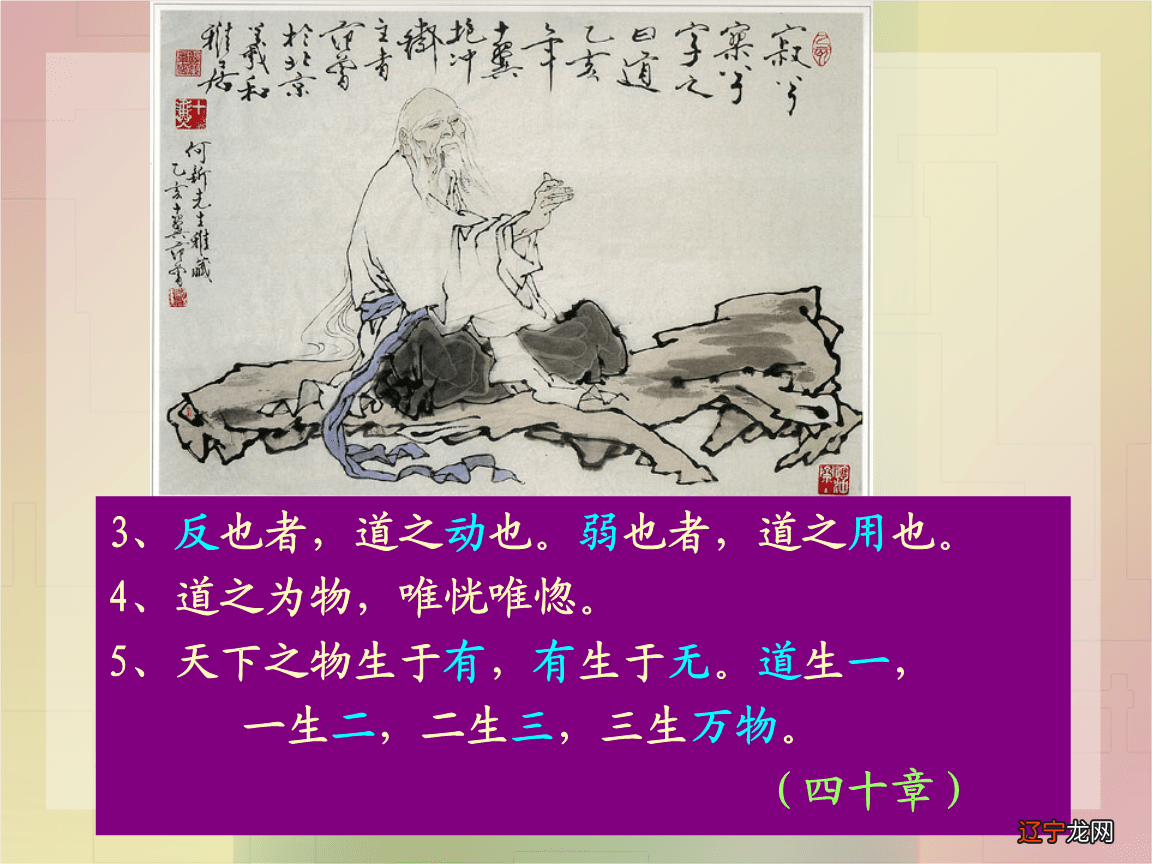 寂兮
寥兮
字之
曰道
乙亥
年
十翼
抱冲
主者
范曾
於北京
羲和
雅居
何新先生雅藏
乙亥十翼范曾
3、反也者，道之动也。弱也者，道之用也。
4、道之为物，唯恍唯惚。
5、天下之物生于有，有生于无。道生一，
一生二，二生三，三生万物。
（四十章）
辽宁龙网